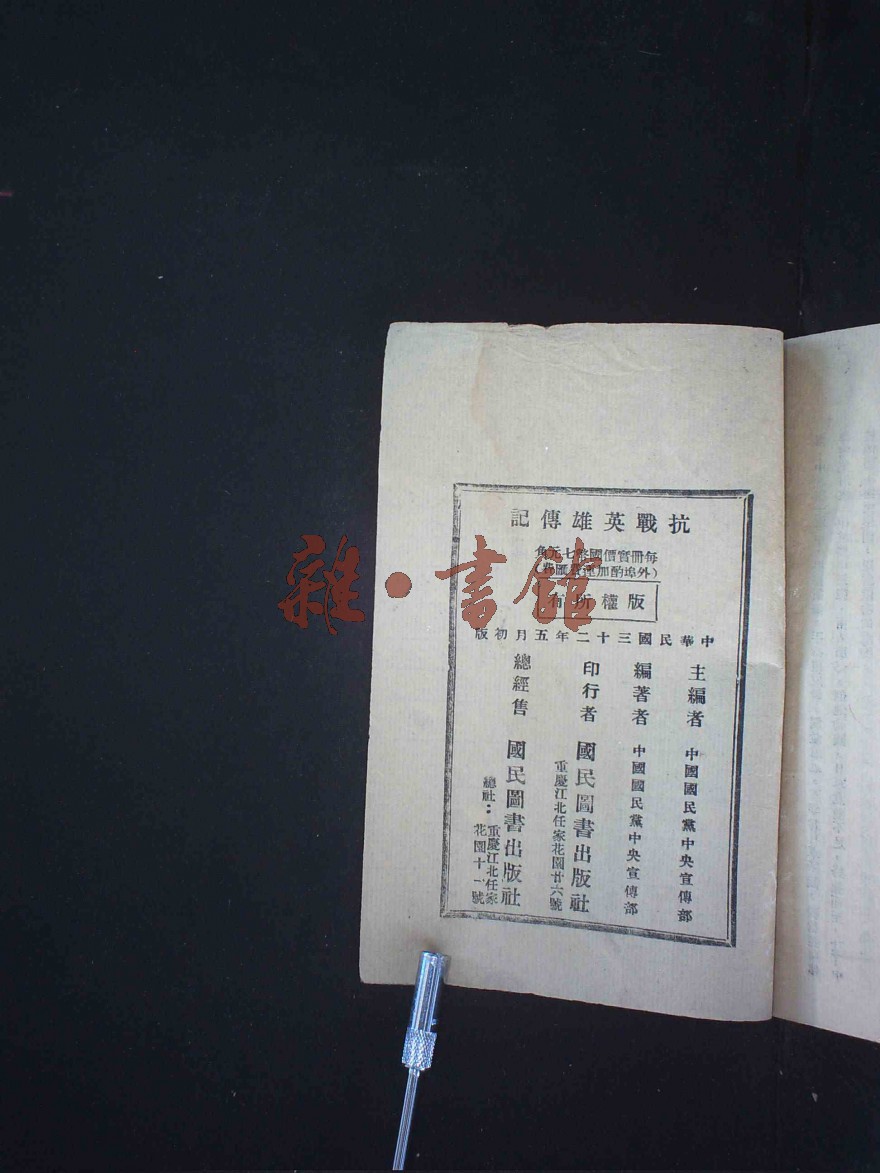 抗戰英雄傳記
每冊實價國幣七元角
(外埠酌加運費匯費)
版權所有
中華民國三十二年五月初版
主編者 中國國民黨中央宣傳部
編著者 中國國民黨中央宣傳部
印行者 國民圖書出版社
重慶江北任家花園廿六號
總經售 國民圖書出版社
總社：重慶江北任家花園十一號
雜·書館